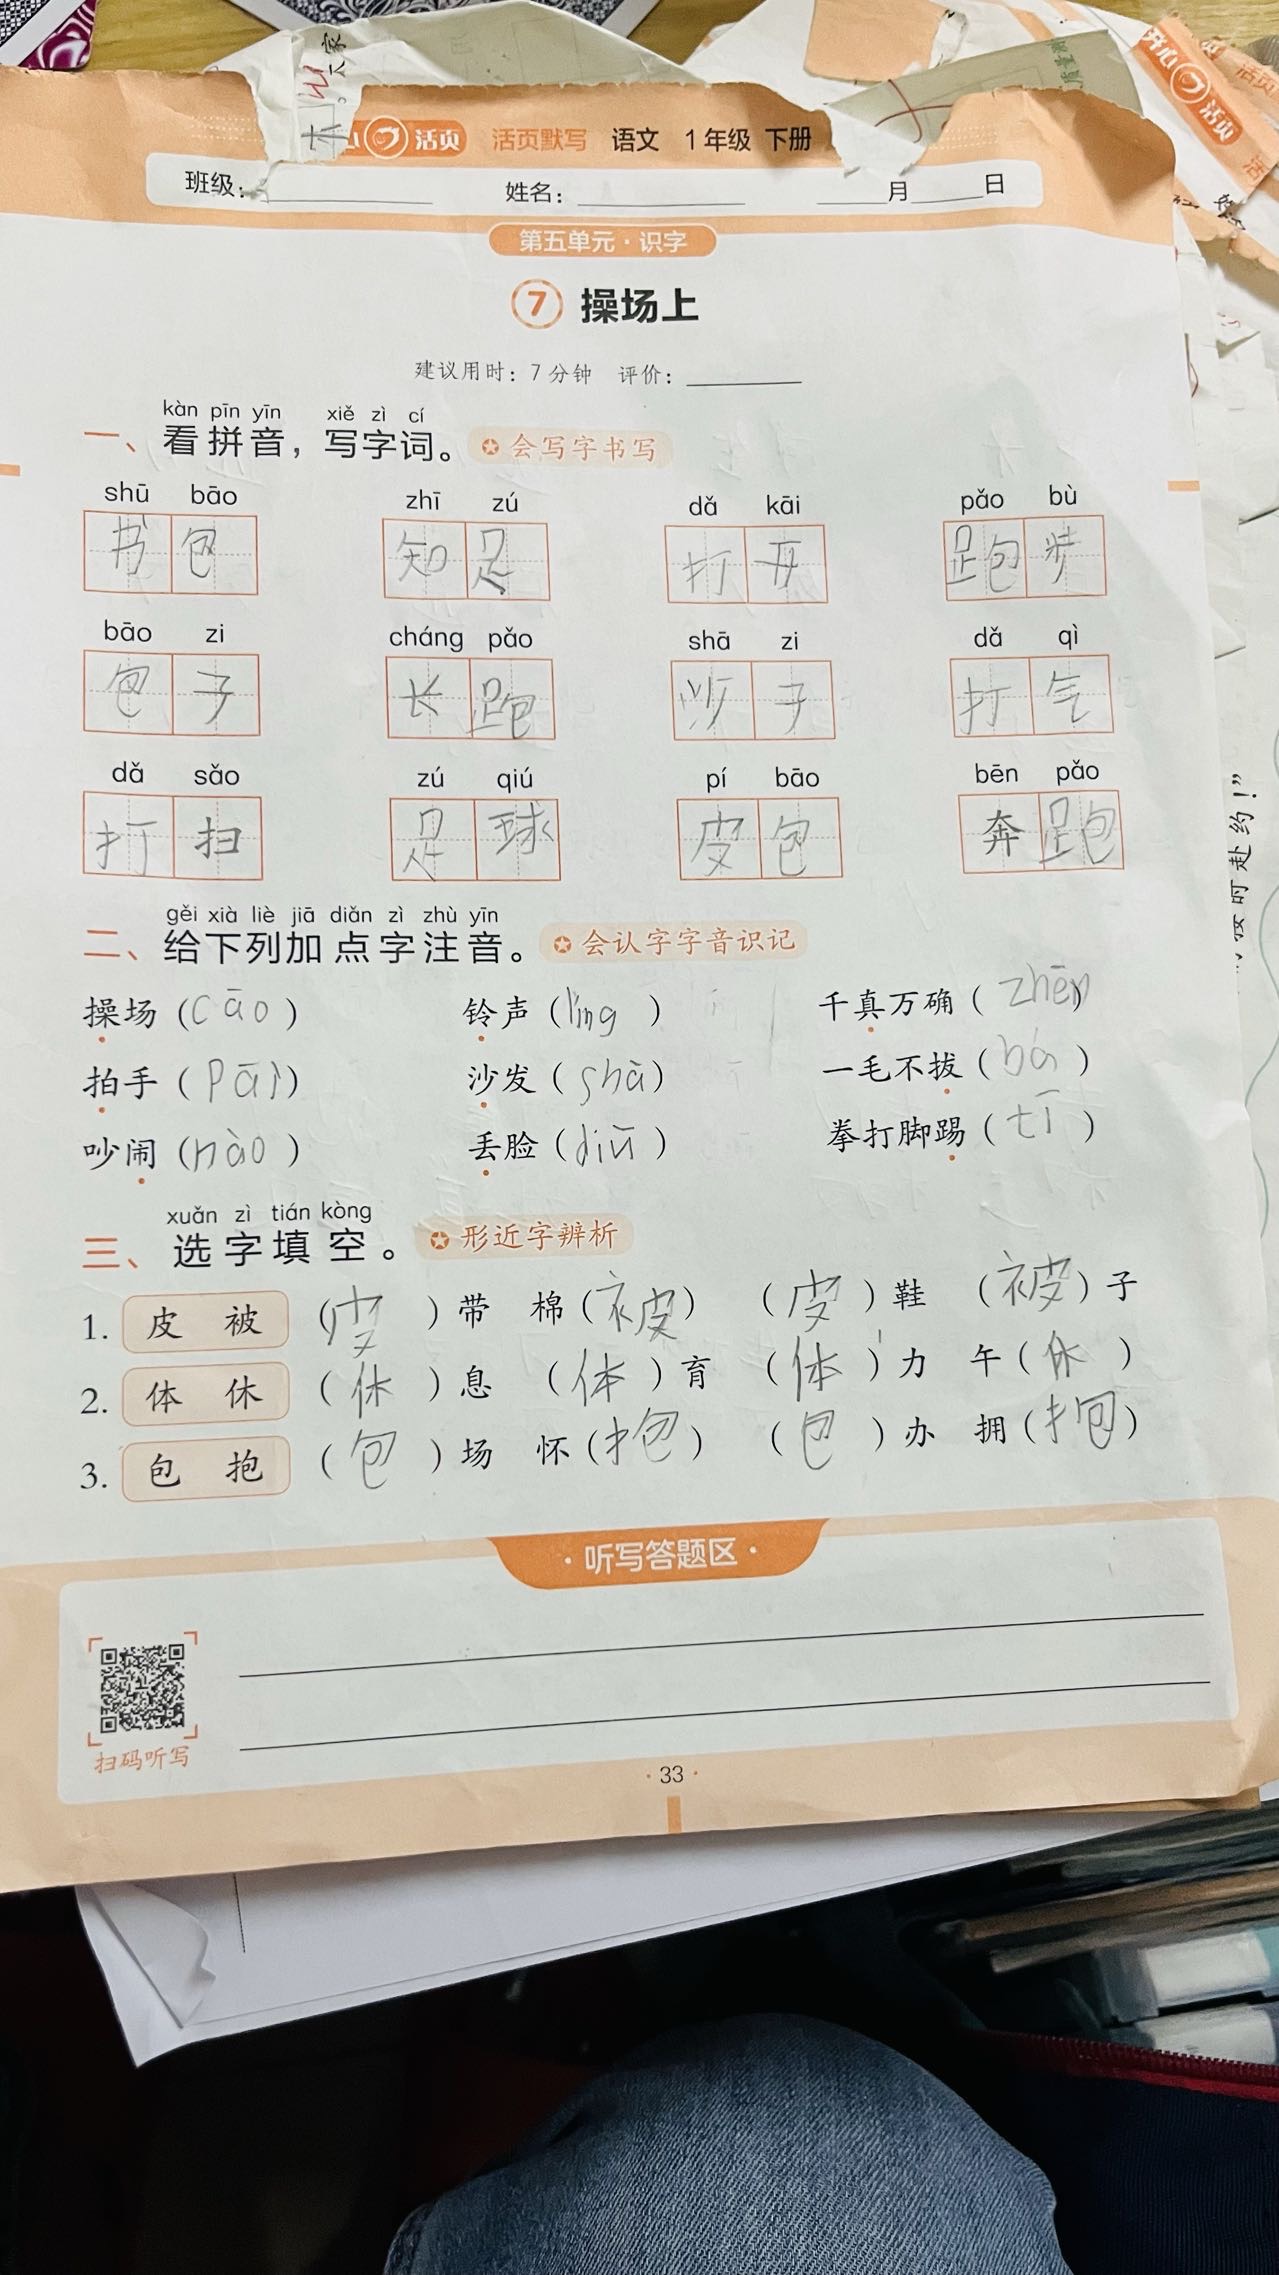 活页 活页默写 语文 1年级 下册
班级： 姓名： 月 日
第五单元·识字
7 操场上
建议用时：7分钟 评价：
kàn pīn yīn xiě zì cí
一、看拼音，写字词。 会写字书写
shū bāo zhī zú dǎ kāi pǎo bù
书包 知足 打开 跑步
bāo zi cháng pǎo shā zi dǎ qì
包子 长跑 沙子 打气
dǎ sǎo zú qiú pí bāo bēn pǎo
打扫 足球 皮包 奔跑
gěi xià liè jiā diǎn zì zhù yīn
二、给下列加点字注音。 会认字字音识记
操场（cāo） 铃声（líng） 千真万确（zhēn）
拍手（pāi） 沙发（shà） 一毛不拔（bá）
吵闹（nào） 丢脸（diū） 拳打脚踢（tī）
xuǎn zì tián kòng
三、选字填空。 形近字辨析
1. 皮 被 （皮）带 棉（被） （皮）鞋 （被）子
2. 体 休 （休）息 （体）育 （体）力 午（休）
3. 包 抱 （包）场 怀（抱） （包）办 拥（抱）
·听写答题区·
扫码听写
·33·
开心 活页
按时赴约！”